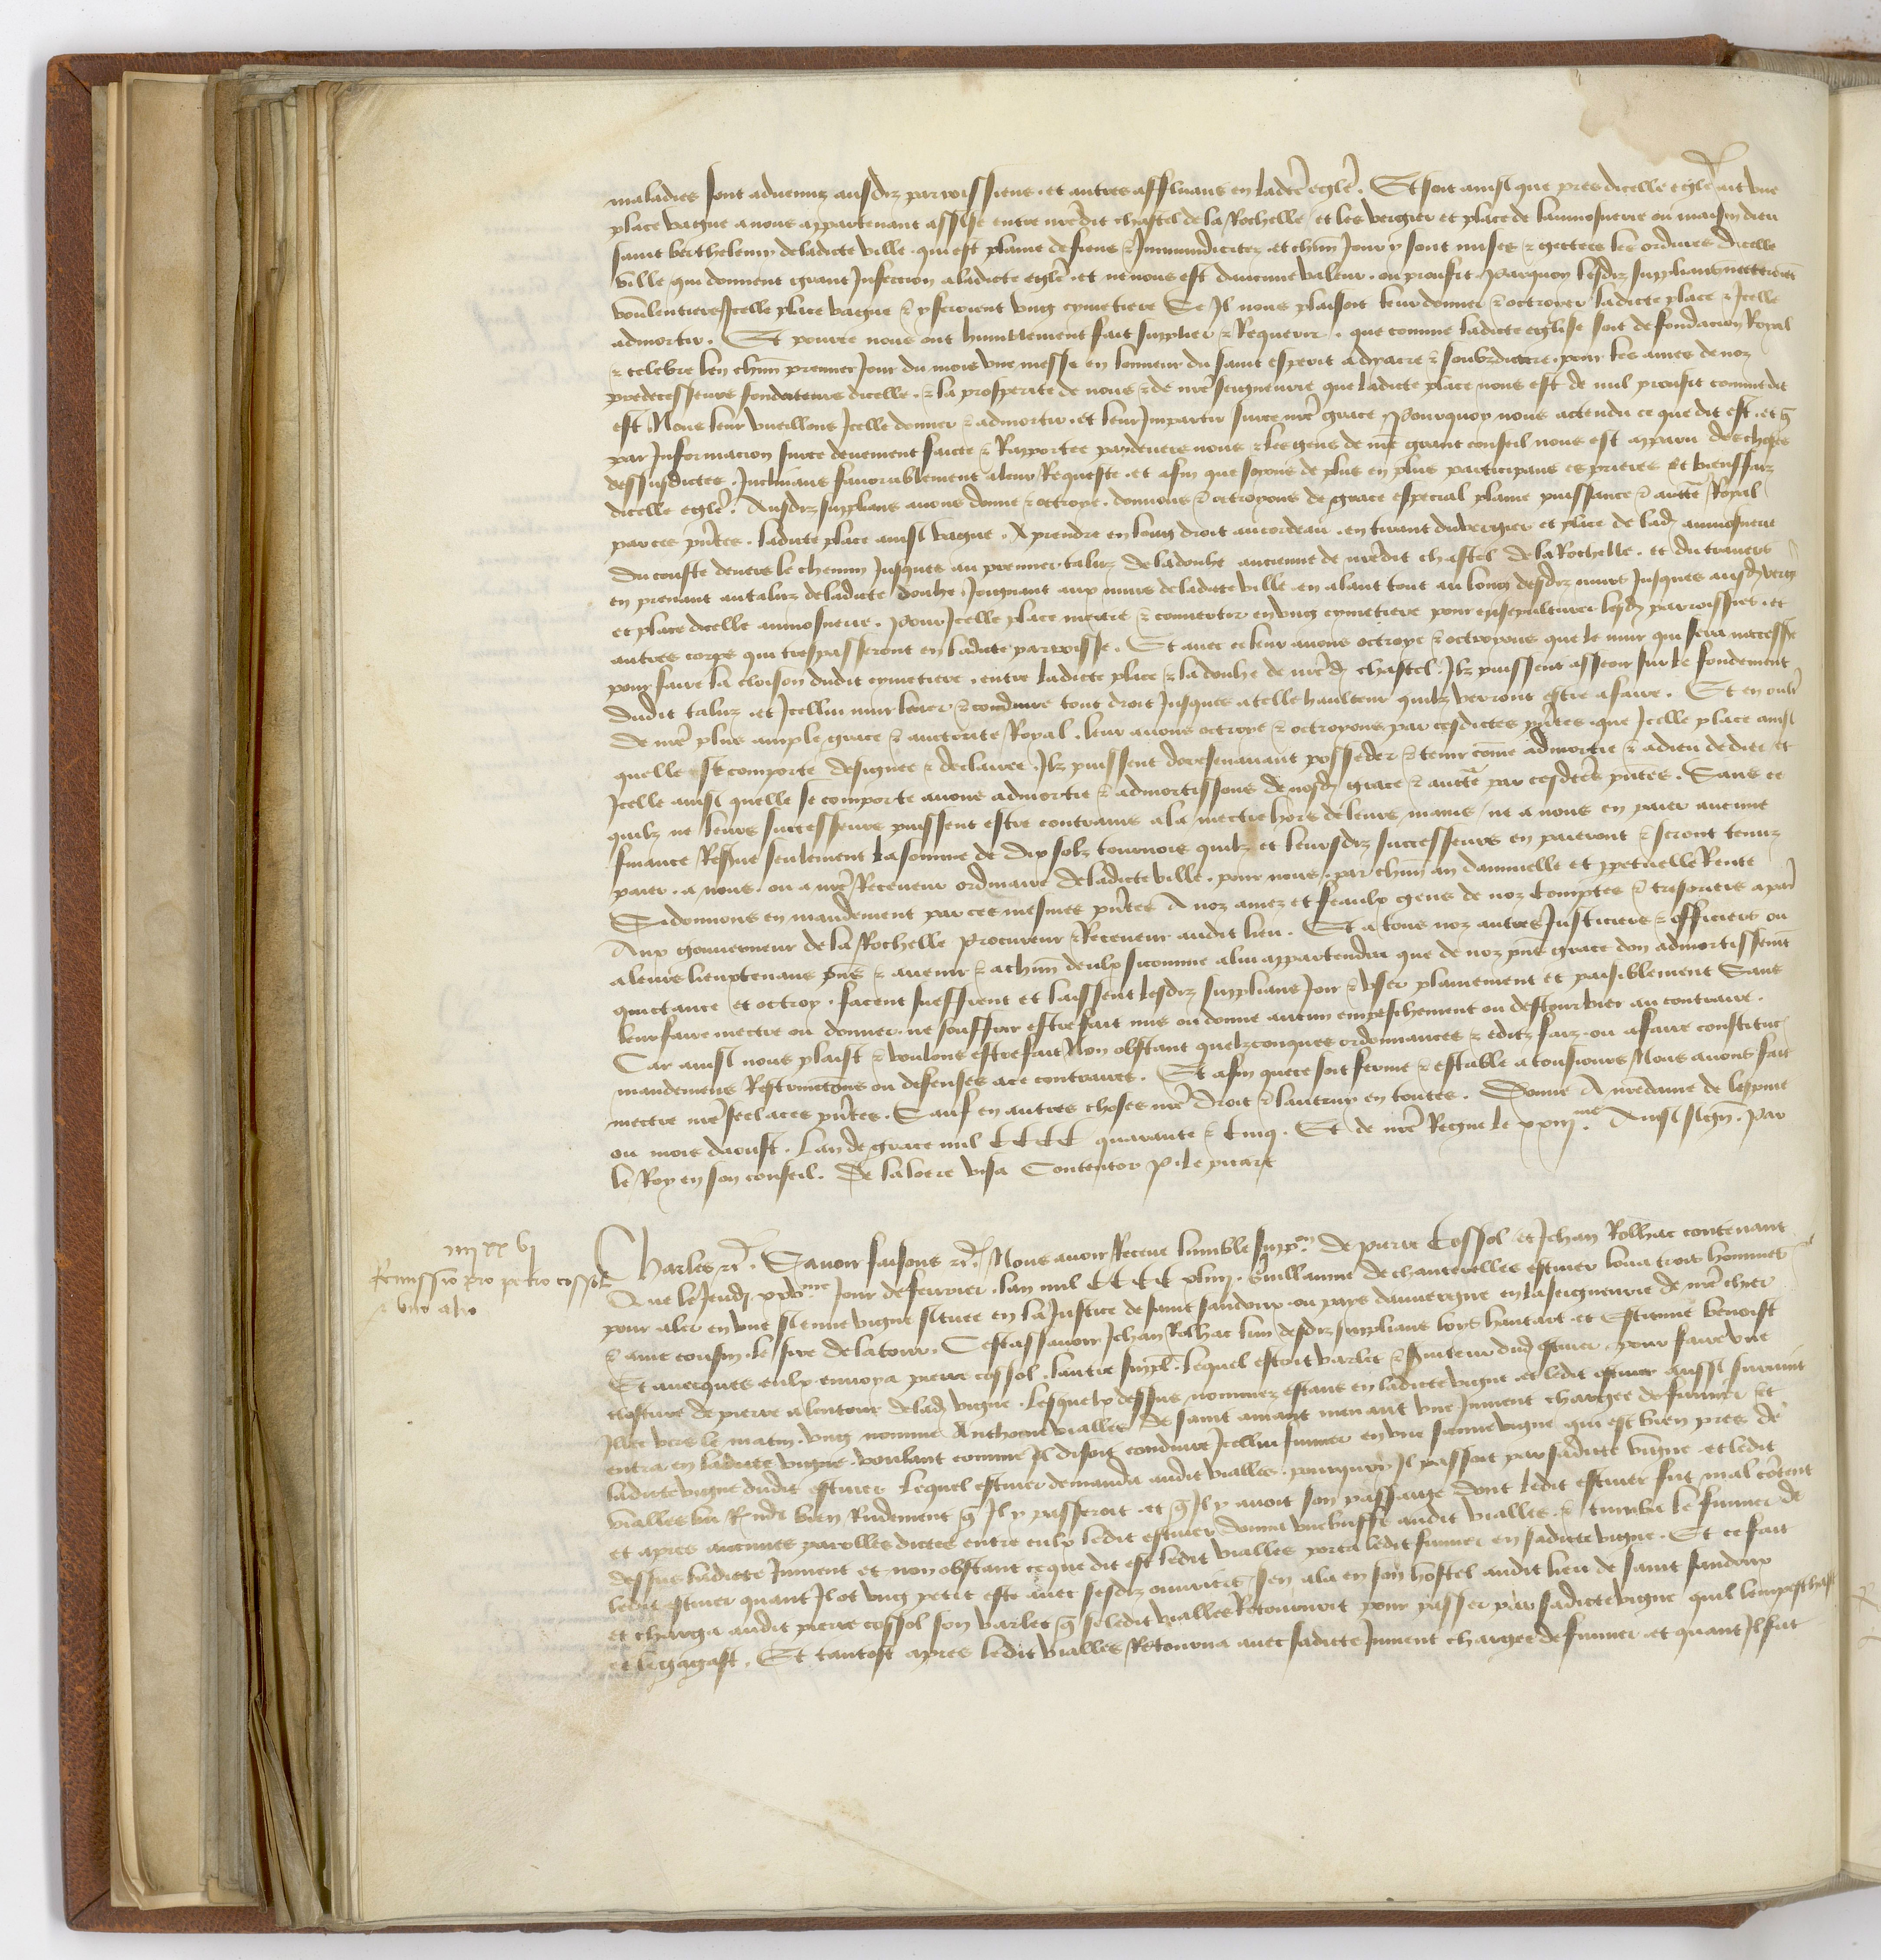 maladies sont advenuz ausdiz parroissiens et autres affluans en lad̃cte egl̃e. Et soit ainsi que pres dicelle egl̃e ait une
place vague a nous appartenant assise entre nr̃edit chastel de la Rochelle et les vergier et place de laumosnerie ou maison dieu
saint berthelemy de ladicte ville qui est plaine de fiens & Immundicitez et chũn Jour y sont mises & gectees les ordures dicelle
ville qui donnent grant Infeccion a ladicte egl̃e et ne nous est daucune valeur ou proufit. Parquoy lesdiz supplians
voulentiers Icelle place vague & y feroient ung cymetiere Se Il nous plaisoit leur donner & octroyer ladicte place & Icelle
admortir. Et pource nous ont humblement fait supplier & Requerir que comme ladicte eglise soit de fondacion Royal
& celebre len chũn premier Jour du mois une messe en lonneur du saint esperit a dyacre & soubzdiacre pour les ames de noz
predecesseurs fondateurs dicelle & la prosperite de nous & de nr̃e seigneurie que ladicte place nous est de nul proufit comme dit
est Nous leur vueillons Icelle donner & admortir et leur Impartir sur ce nr̃e grace Pourquoy nous actendu ce que dit est et q̃
par Informacion sur ce deuement faicte & Rapportee pardevers nous & les gens de nr̃e grant conseil nous est apparu des choses
dessusdictes Inclinans favorablement a leur Requeste et afin que soyons de plus en plus participans es prieres et bienffaiz
dicelle egl̃e. Ausdiz supplians avons donne & octroye donnons & octroyons de grace especial plaine puissance & auctẽ Royal
par ces pñtes ladicte place ainsi vague A prendre en long droit au cordeau en tirant du vergier et place de lad aumosnerie
du couste devers le chemin Jusques au premier taluz de la douhe ancienne de nr̃edit chastel de la Rochelle et du travers
en prenant au taluz de ladicte douhe Joignant aux murs de ladicte ville en alant tout au long desdiz murs Jusques ausd verg
et place dicelle aumosnerie. Pour Icelle place mectre & convertir en ung cymetiere pour ensepulturer lesd parroissiẽs et
autres corps qui trespasseront en ladicte parroisse. Et avec ce leur avons octroye & octroyons que le mur qui sera neccessẽ
pour faire la cloison dudit cymetiere entre ladicte place & la douhe de nr̃ed chastel Ilz puissent asseoir sur le fondement
dudit taluz et Icellui mur lever & conduire tout droit Jusques a telle haulteur quilz verront estre a faire. Et en oult̃
de nr̃e plus ample grace & auctorite Royal leur avons octroye & octroyons par cesdictes pñtes que Icelle place ainsi
quelle se comporte designee & declairee Ilz puissent doresenavant posseder & tenir cõme admortie & a dieu dediee et
Icelle ainsi quelle se comporte avons admortie & admortissons de nosd grace & auctẽ par cesdctẽs pñtes. Sans ce
quilz ne leurs successeurs puissent estre contrains a la mectre hors de leurs mains ne a nous en paier aucune
finance Reserve seulement la somme de dix solz tournois quilz et leursdiz successeurs en paieront & seront tenuz
paier a nous ou a nr̃e Receveur ordinaire de ladicte ville pour nous par chũn an dannuelle et ppetuelle Rente
Si donnons en mandement par ces mesmes pñtes A noz amez et feaulx gens de noz Comptes & tresoriers a paris
Aux gouverneur de la Rochelle procureur & Receveur audit lieu. Et a tous noz autres Justiciers & officiers ou
a leurs lieuxtenans pñs & avenir & a chũn deulx sicomme a lui appartendra que de noz pñs grace don admortissemẽt
quictance et octroy facent sueffrent et laissent lesdiz supplians Joir & user plainement et paisiblement Sans
leur faire mectre ou donner ne souffrir estre fait mis ou donne aucun empeschement ou destourbier au contraire.
Car ainsi nous plaist & voulons estre fait Non obstant quelzconques ordonnances & editz faiz ou a faire constituc
mandemens Restrinctiõs ou defenses a ce contraires. Et afin que ce soit ferme & estable a tousiours Nous avons fait
mectre nr̃e seel a ces pñtes. Sauf en autres choses nr̃e droit & lautruy en toutes. Donne A nr̃edame de lespine
ou mois daoust Lan de grace mil CCCC quarante & Cinq. Et de nr̃e Regne le xxiij.me Ainsi sign̄. Par
le Roy en son conseil. De laloere visa Contentor P. le picart
iiij xx vj
Remissio pro petro cossol
& uno alio
Charles &c̃. Savoir faisons &c̃. Nous avoir Receue lumble supp.on de pierre Cossol et Jehan Rolhac contenant
Que le Jeudi xxv.me Jour de fevrier lan mil CCCC xliiij. Guillaume de chanterelles estuier loua trois hommes
pour aler en une sienne vigne situee en la Justice de saint sandoux ou pays dauvergne en la seigneurie de nr̃e chier
& ame cousin le sire de la tour. Cestassavoir Jehan Rolhac lun desdiz supplians loys hautart et Estienne benoist
Et avecques eulx envoya pierre cossol lautre suppl̃. lequel estoit varlet & s̃viteur dud estuier pour faire une
closture de pierre a lentour de lad vigne. Lesquelx dessus nommez estans en ladicte vigne et ledit estuier aussi survint
Illec vers le matin ung nomme Anthoine vialles de saint amant menant une Jument chargee de fumier et
entra en ladicte vigne voulant comme Il disoit conduire Icellui fumier en une sienne vigne qui est bien pres de
ladicte vigne dudit estuier Lequel estuier demanda audit vialles pourquoy Il passoit par sadicte vigne et ledit
vialles lui Respondi bien Rudement q̃ Il y passeroit et q̃ Il y avoit son passaige dont ledit estuier fut mal cõtent
et apres aucunes parolles dictes entre eulx ledit estuier donna une buffe audit vialles & tumba le fumier de
dessus ladicte Jument et non obstant ce que dit est ledit vialles porta ledit fumier en sadicte vigne. Et ce fait
ledit estuier quant Il ot ung petit este avec sesdiz ouvriers sen ala en son hostel audit lieu de saint sandoux
et charga audit pierre cossol son varlet q̃ se ledit vialles Retournoit pour passer par sadicte vigne quil lempeschast
et le gagast. Et tantost apres ledit vialles Retourna avec sadicte Jument chargee de fumier et quant Il fut